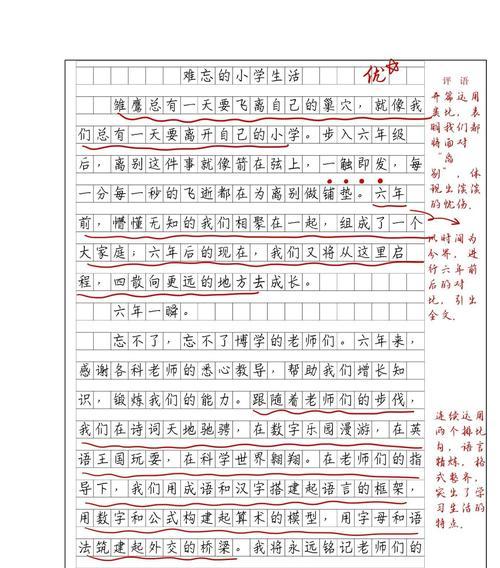 难忘的小学生活
优
雏鹰总有一天要飞离自己的巢穴，就像我
们总有一天要离开自己的小学。步入六年级
后，离别这件事就像箭在弦上，一触即发，每
一分每一秒的飞逝都在为离别做铺垫。六年
前，懵懂无知的我们相聚在一起，组成了一个
大家庭；六年后的现在，我们又将从这里启
程，四散向更远的地方去成长。
六年一瞬。
忘不了，忘不了博学的老师们。六年来，
感谢各科老师的悉心教导，帮助我们增长知
识，锻炼我们的能力。跟随着老师们的步伐，
我们在诗词天地驰骋，在数字乐园漫游，在英
语王国玩耍，在科学世界翱翔。在老师们的指
导下，我们用成语和汉字搭建起语言的框架，
用数字和公式构建起算术的模型，用字母和语
法筑建起外交的桥梁。我将永远铭记老师们的
评语
开篇运用
类比，表
明我们都
将面对
“离
别”，体
现出淡淡
的忧伤。
以时间为
分界，进
行六年前
后的对
比，引出
全文。
连续运用
两个排比
句，语言
精炼，格
式整齐，
突出了学
习生活的
特点。